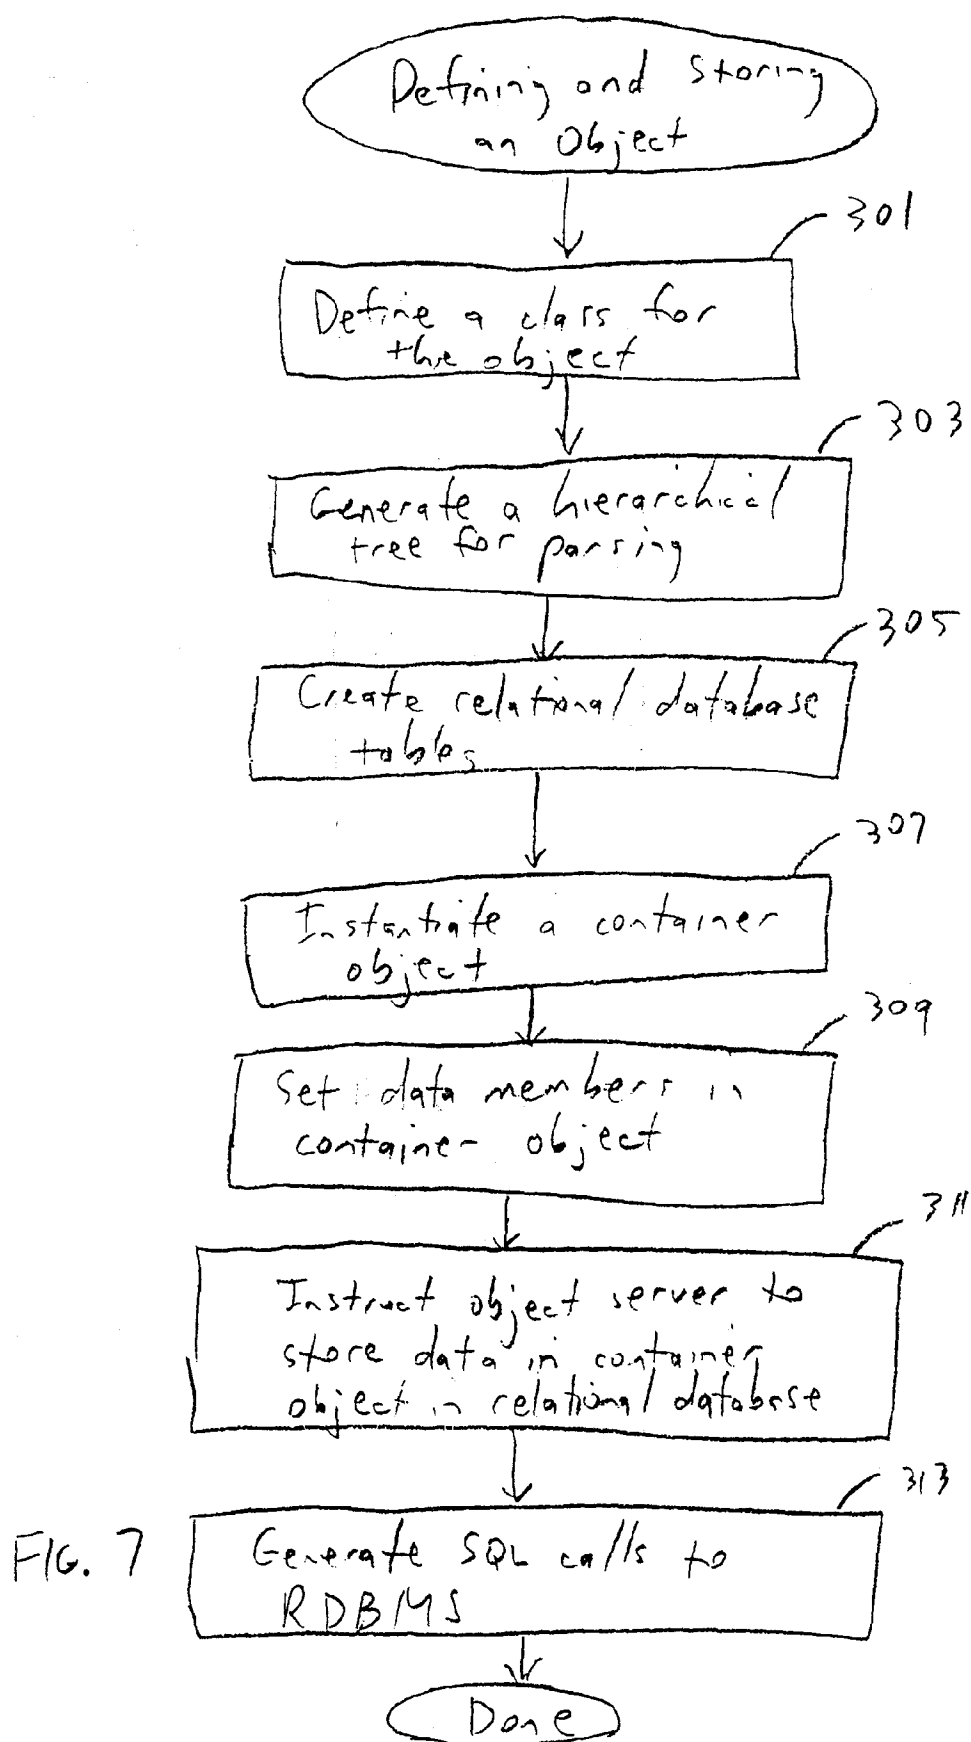 Defining and Storing
an Object
301
Define a class for
the object
303
Generate a hierarchical
tree for parsing
305
Create relational database
tables
307
Instantiate a container
object
309
Set data members in
container object
311
Instruct object server to
store data in container
object in relational database
313
Generate SQL calls to
RDBMS
FIG. 7
Done